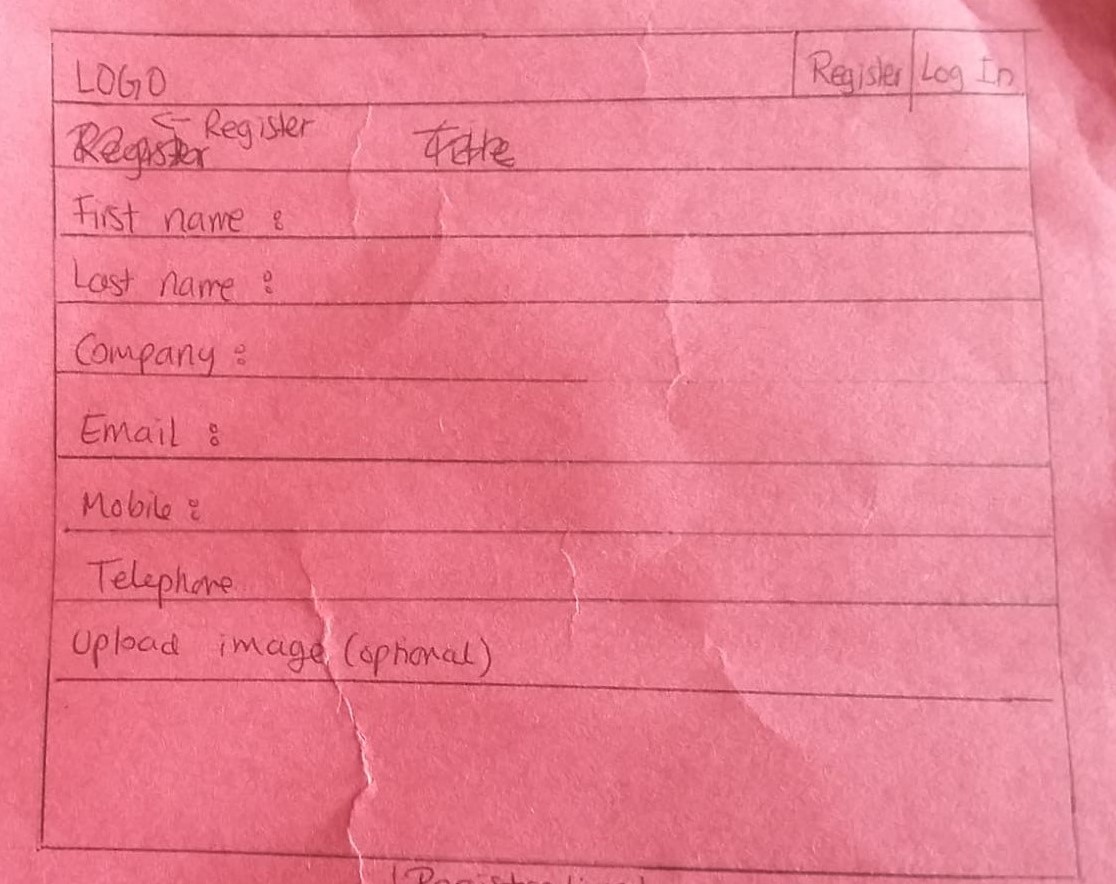 LOGO Register Log In
<- Register
Register Title
First name :
Last name :
Company :
Email :
Mobile :
Telephone
Upload image (optional)